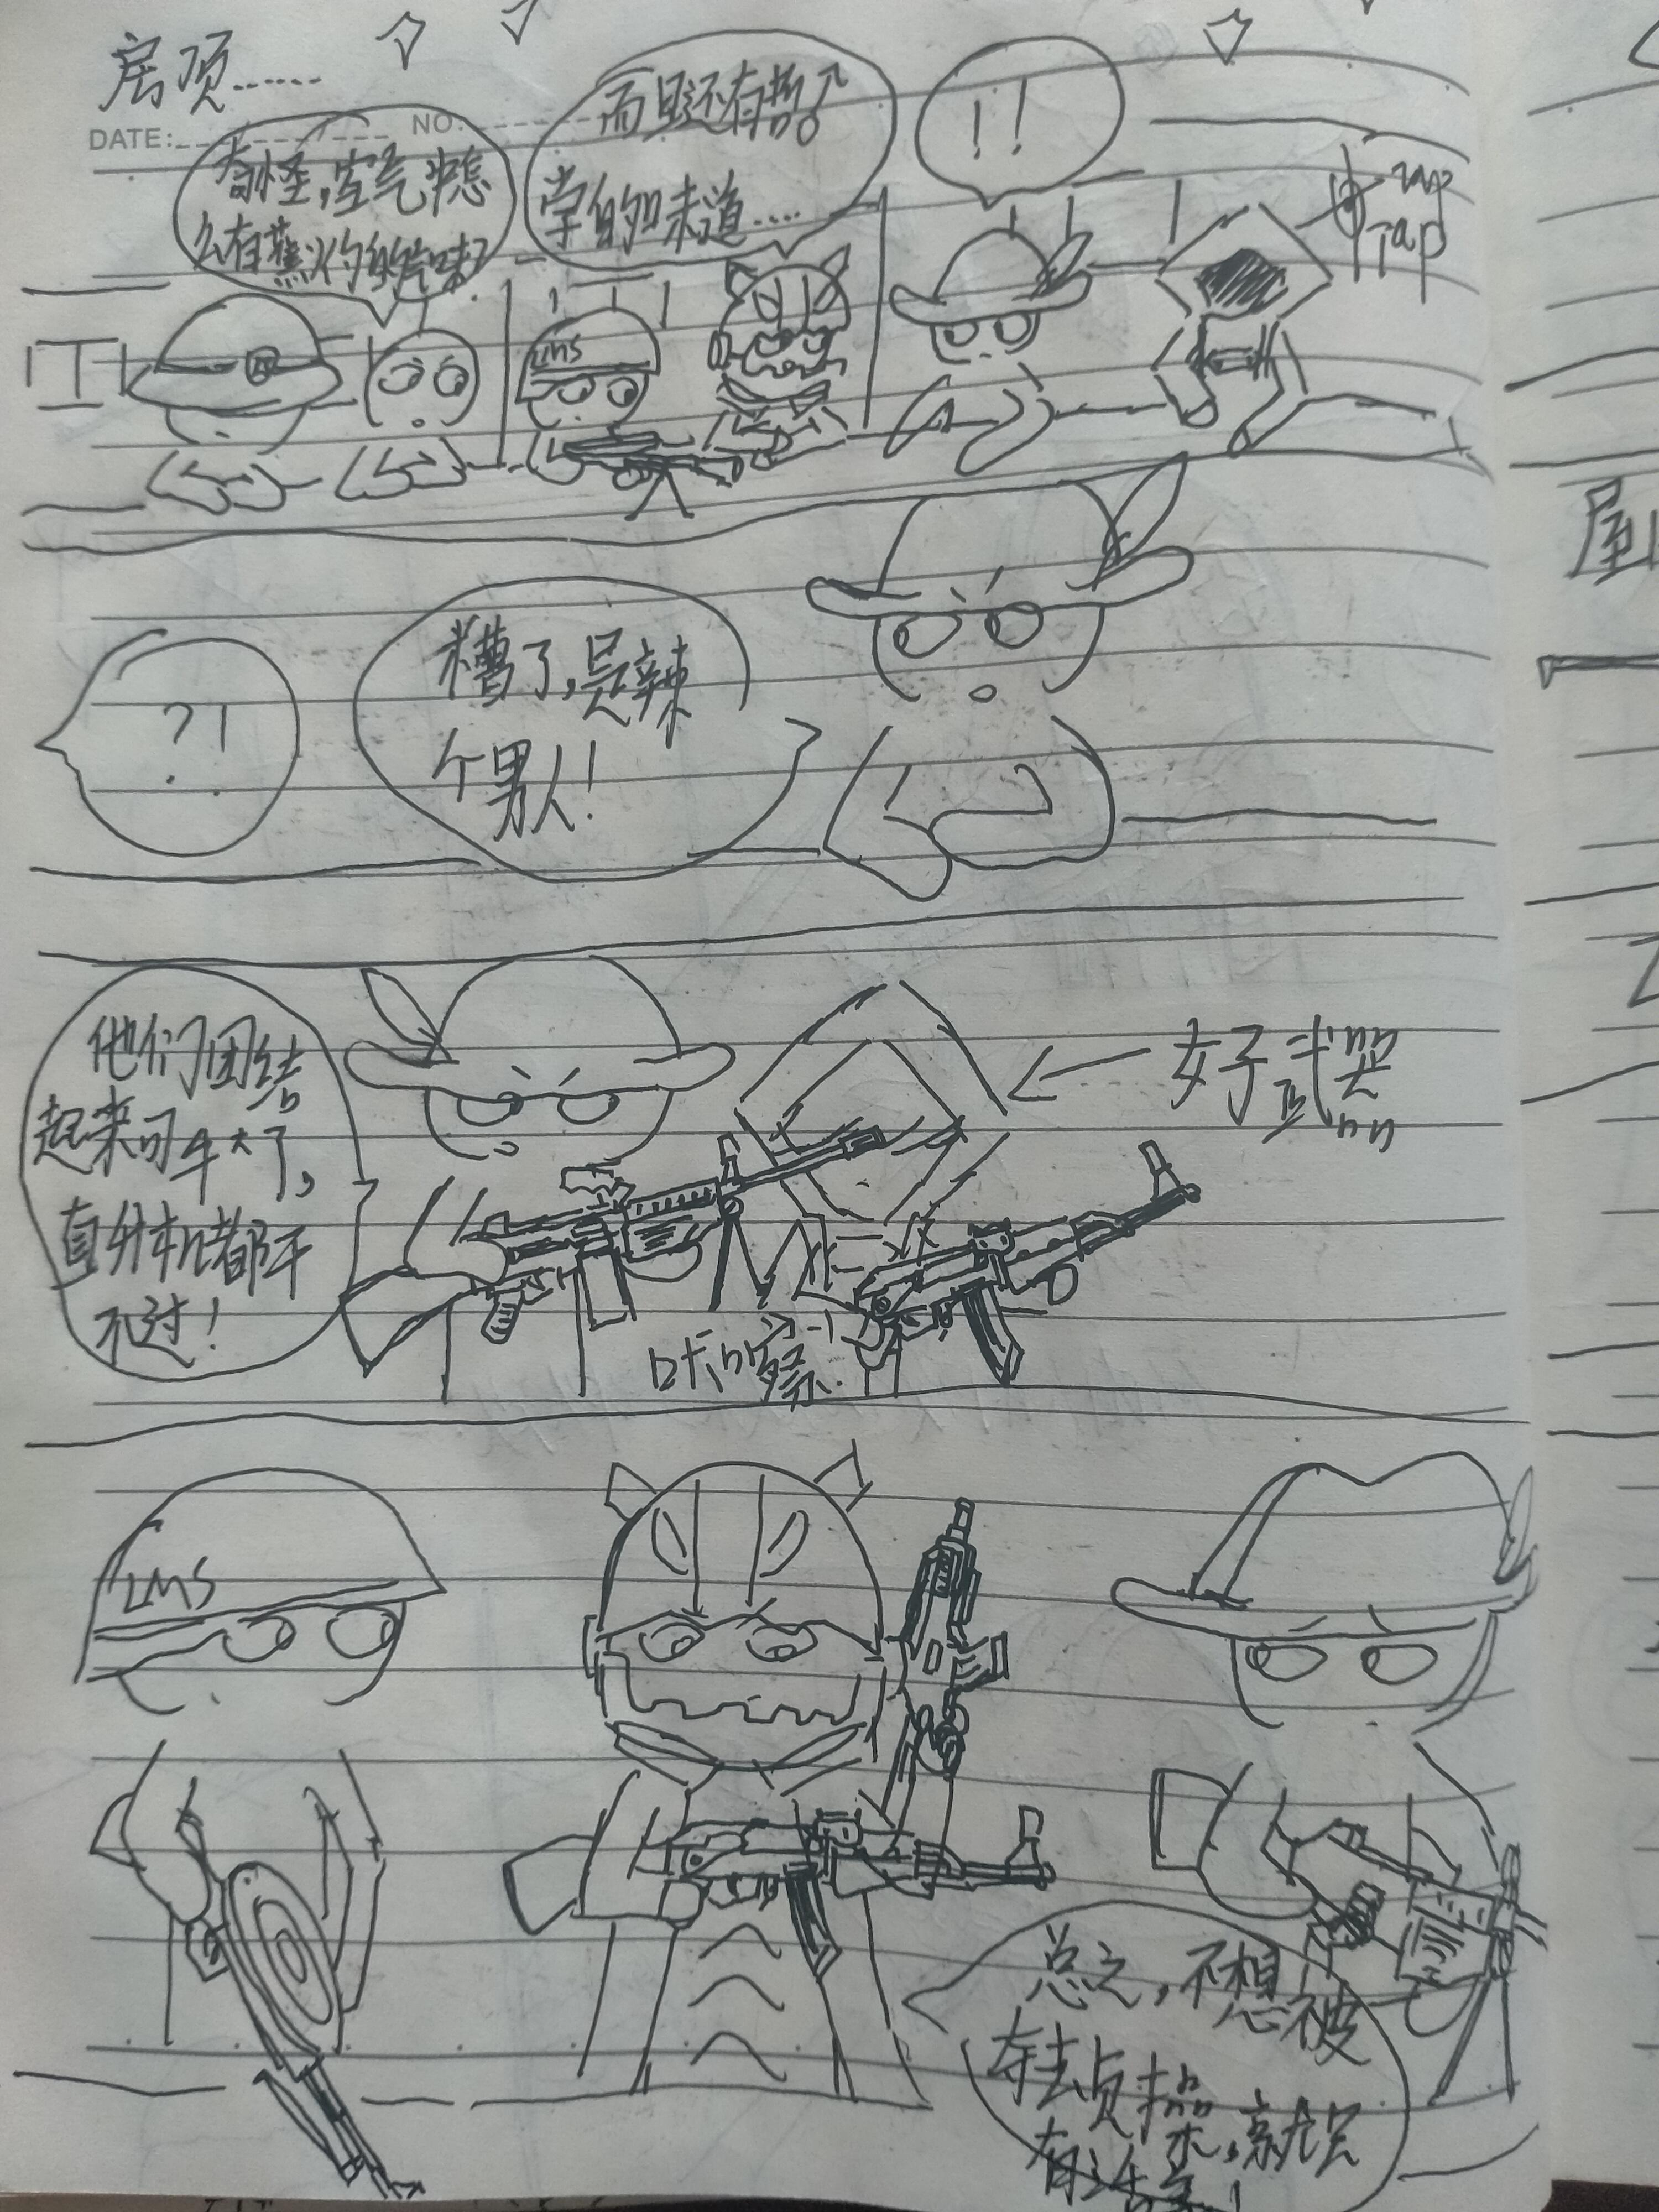 房顶……
DATE:
NO.
奇怪,空气中怎
么有蕉灼的气味?
而且还有哲♂
学的味道……
!!
Tap
Tap
LMS
糟了,是辣
个男人!
?!
他们团结
起来可牟大了,
直升机都干
不过!
好武器
咔嚓
LMS
总之,不想被
夺去贞操,就只
有
屋